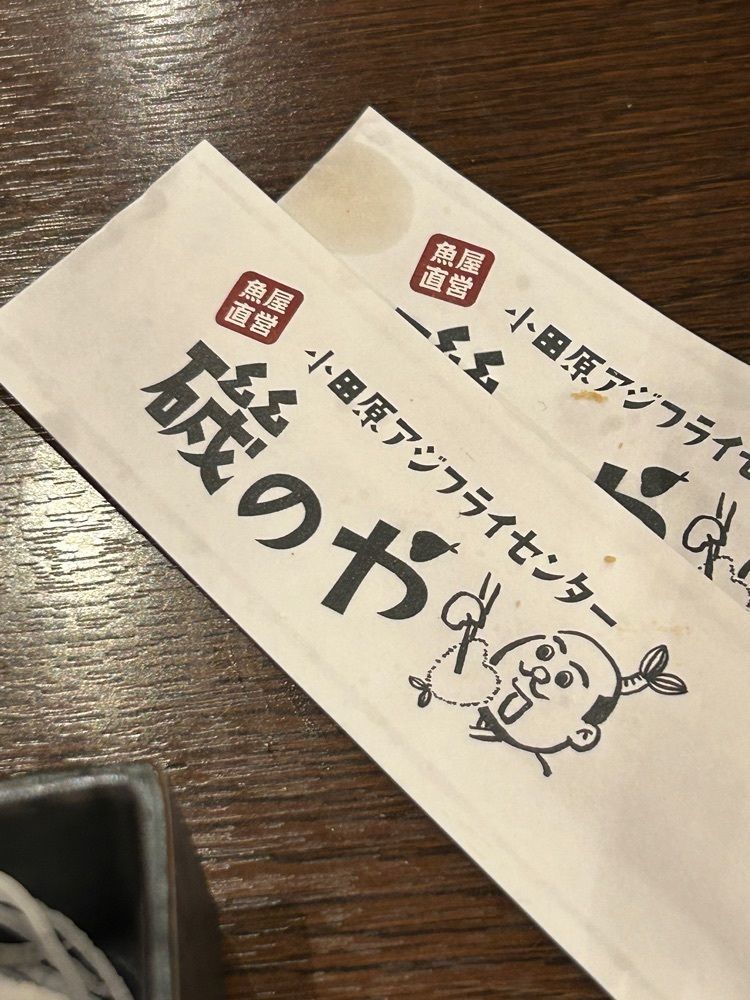 魚屋
直営
小田原アジフライセンター
磯のや
魚屋
直営
小田原アジフライセ